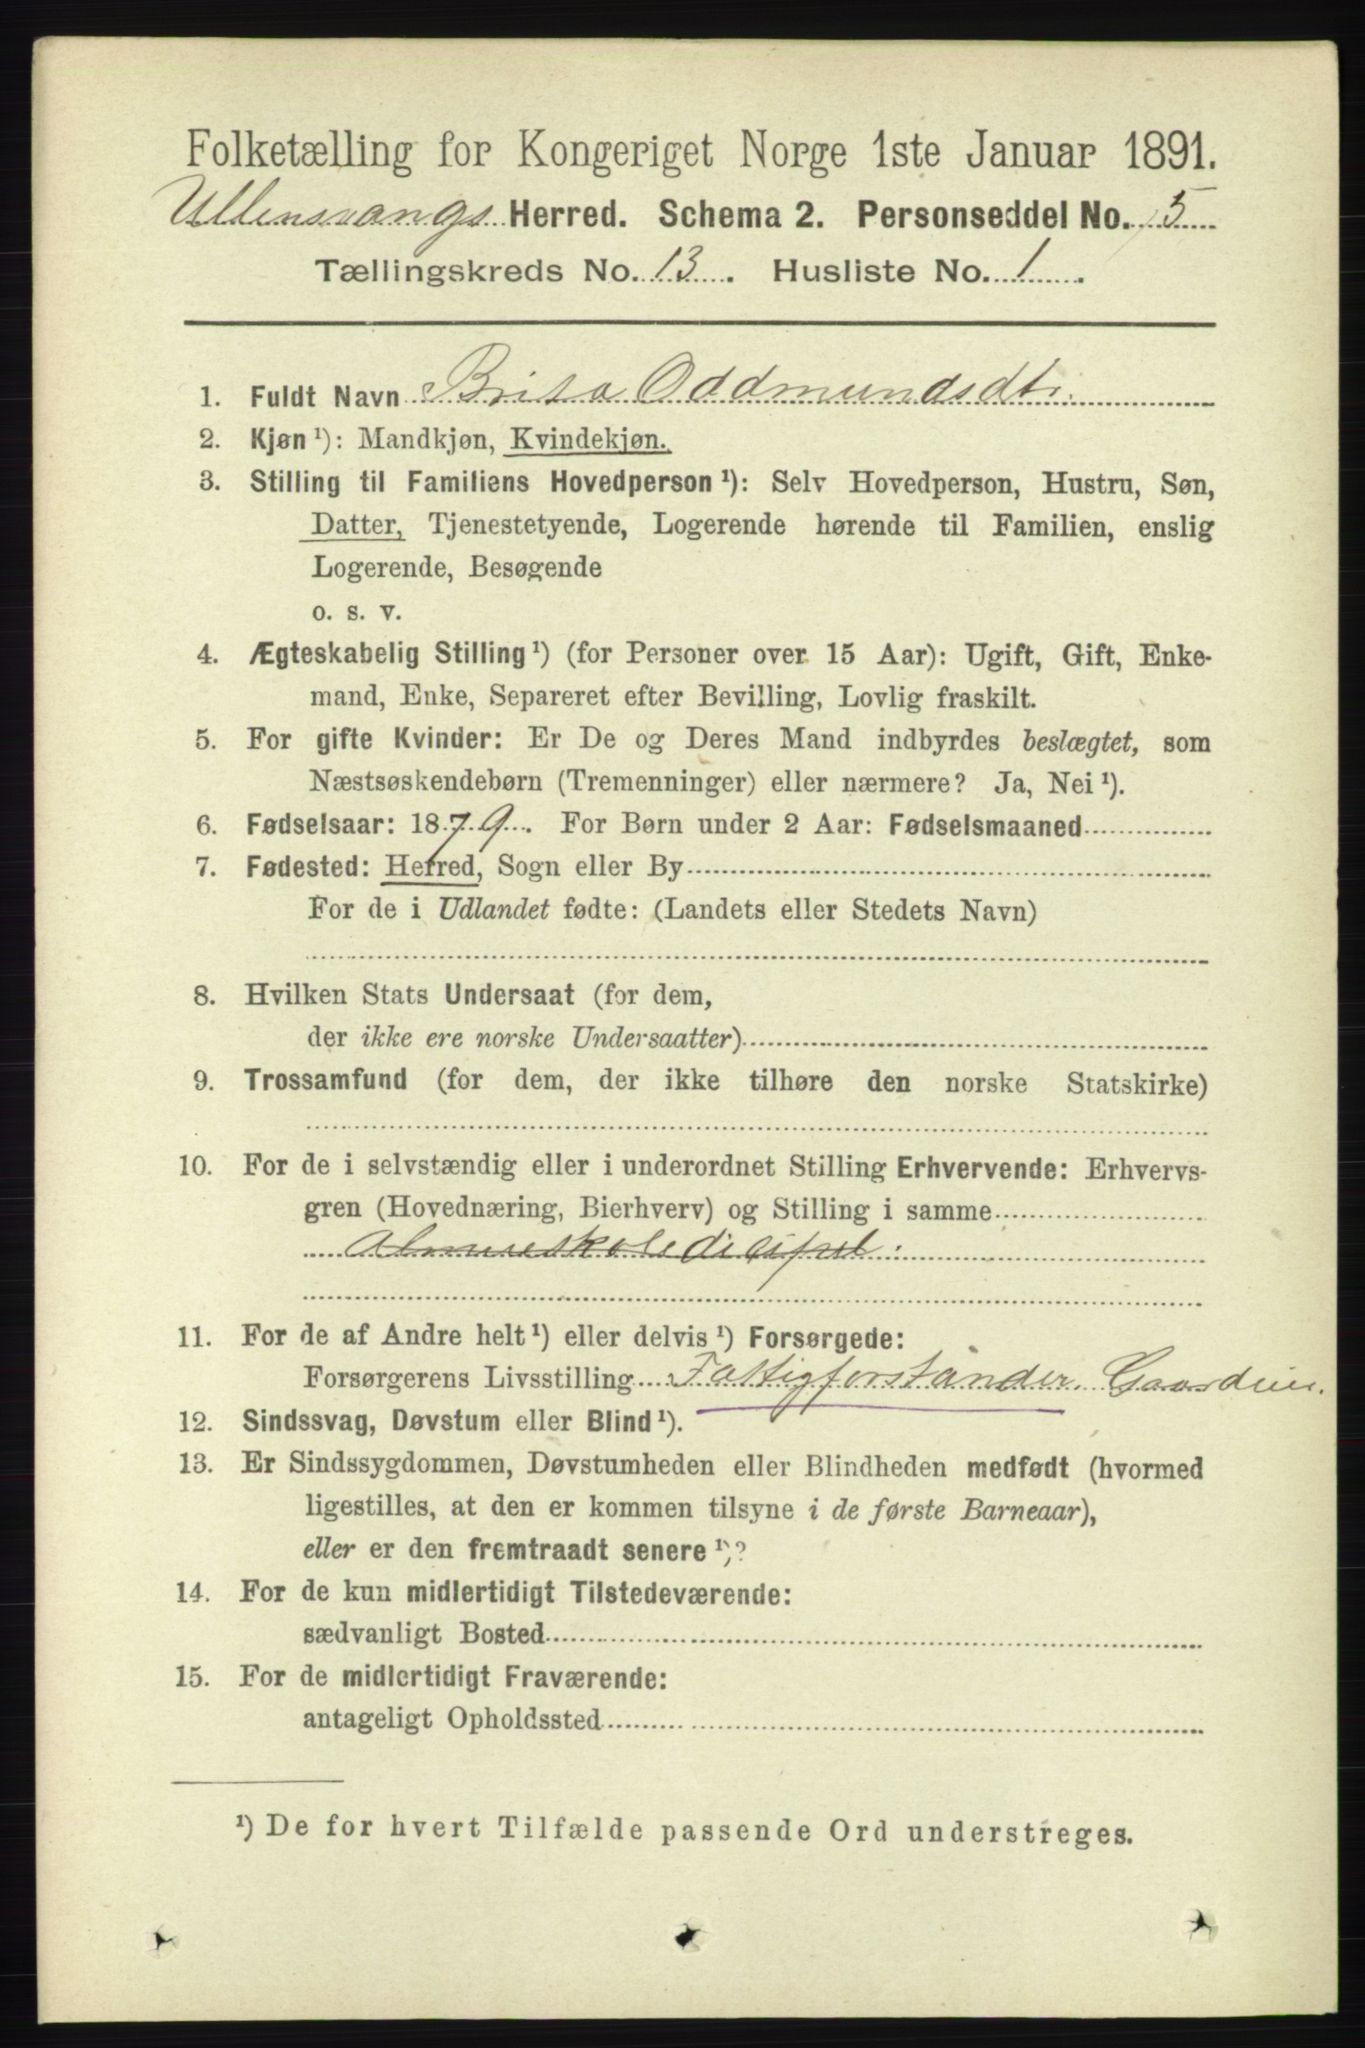 Folketælling for Kongeriget Norge 1ste Januar 1891.
Ullensvangs Herred. Schema 2. Personseddel No. 5
Tællingskreds No. 13. Husliste No. 1.
1. Fuldt Navn Brita Oddmundsdtr.
2. Kjøn ¹): Mandkjøn, Kvindekjøn.
3. Stilling til Familiens Hovedperson ¹): Selv Hovedperson, Hustru, Søn,
Datter, Tjenestetyende, Logerende hørende til Familien, enslig
Logerende, Besøgende
o. s. v.
4. Ægteskabelig Stilling ¹) (for Personer over 15 Aar): Ugift, Gift, Enke-
mand, Enke, Separeret efter Bevilling, Lovlig fraskilt.
5. For gifte Kvinder: Er De og Deres Mand indbyrdes beslægtet, som
Næstsøskendebørn (Tremenninger) eller nærmere? Ja, Nei ¹).
6. Fødselsaar: 1879. For Børn under 2 Aar: Fødselsmaaned
7. Fødested: Herred, Sogn eller By
For de i Udlandet fødte: (Landets eller Stedets Navn)
8. Hvilken Stats Undersaat (for dem,
der ikke ere norske Undersaatter)
9. Trossamfund (for dem, der ikke tilhøre den norske Statskirke)
10. For de i selvstændig eller i underordnet Stilling Erhvervende: Erhvervs-
gren (Hovednæring, Bierhverv) og Stilling i samme
Almueskoledicipel.
11. For de af Andre helt ¹) eller delvis ¹) Forsørgede:
Forsørgerens Livsstilling Fattigforstander.
12. Sindssvag, Døvstum eller Blind ¹).
13. Er Sindssygdommen, Døvstumheden eller Blindheden medfødt (hvormed
ligestilles, at den er kommen tilsyne i de første Barneaar),
eller er den fremtraadt senere ¹)?
14. For de kun midlertidigt Tilstedeværende:
sædvanligt Bosted
15. For de midlertidigt Fraværende:
antageligt Opholdssted
¹) De for hvert Tilfælde passende Ord understreges.